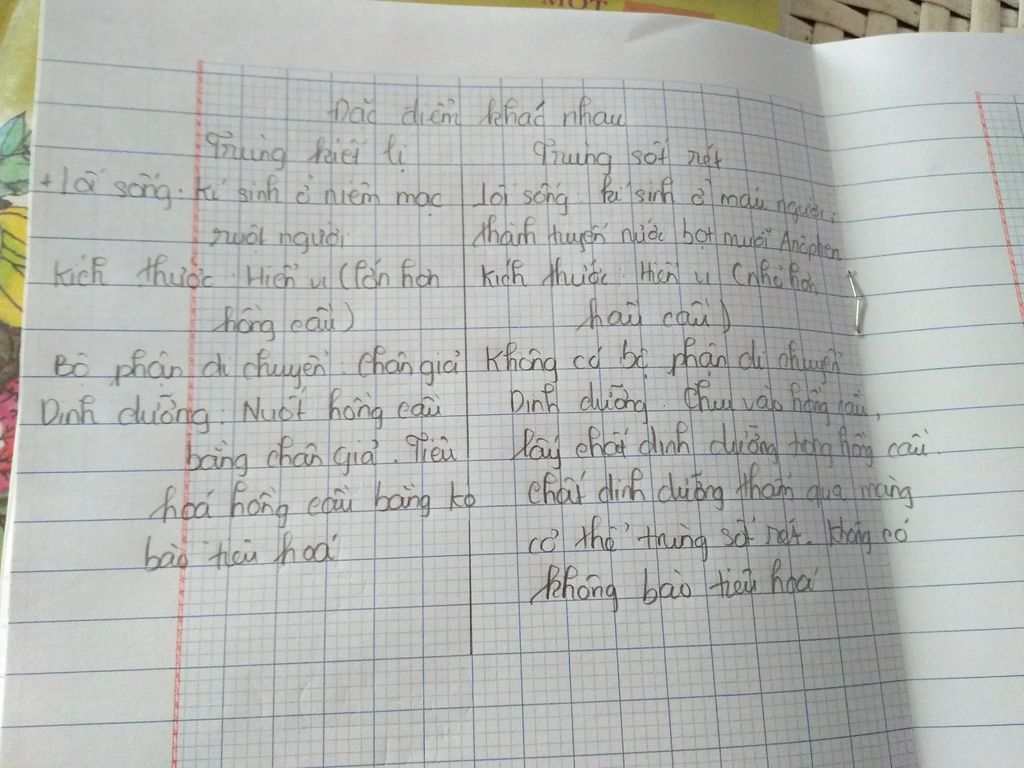 MỘT
Đặc điểm khác nhau
Trùng kiết lị
Trùng sốt rét
+ lối sống: Kí sinh ở niêm mạc
ruột người
Kích thước Hiển vi (lớn hơn
hồng cầu)
Bộ phận di chuyển. Chân giả
Dinh dưỡng: Nuốt hồng cầu
bằng chân giả. Tiêu
hoá hồng cầu bằng ko
bào tiêu hoá
lối sống kí sinh ở máu người,
thành tuyến nước bọt muỗi Anôphen
Kích thước Hiển vi (nhỏ hơn
hầu cầu)
Không có bộ phận di chuyển
Dinh dưỡng. Chui vào hồng cầu,
lấy chất dinh dưỡng trong hồng cầu.
Chất dinh dưỡng thấm qua màng
cơ thể trùng sốt rét. không có
không bào tiêu hoá